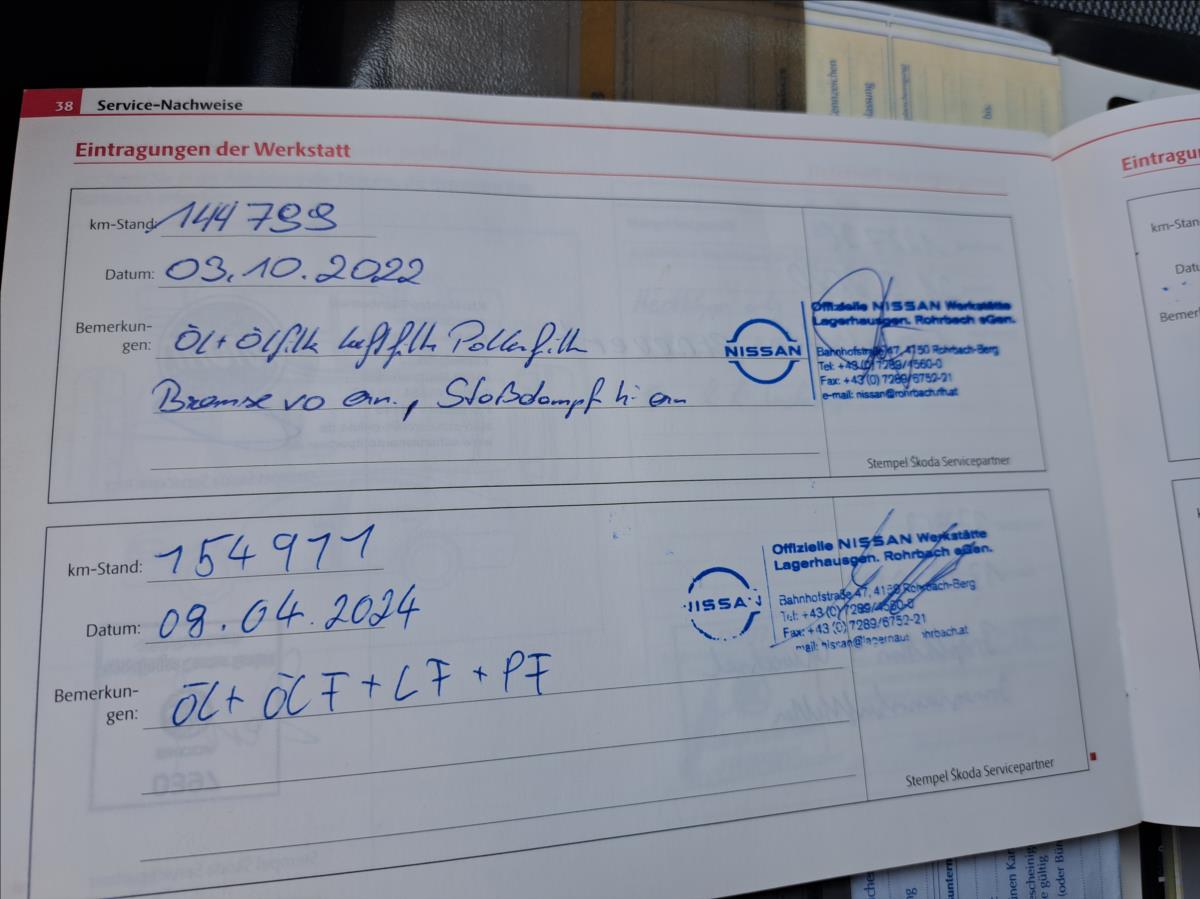 38 Service-Nachweise
Eintragungen der Werkstatt
km-Stand: 144799
Datum: 03.10.2022
Bemerkun-
gen: Öl+Ölfilt Luftfilt Pollenfilt
Bremse vo ern., Stoßdampf hi ern
NISSAN
Offizielle NISSAN Werkstätte
Lagerhausgen. Rohrbach eGen.
Bahnhofstraße 47, 4150 Rohrbach-Berg
Tel: +43 (0) 7289/4560-0
Fax: +43 (0) 7289/6752-21
e-mail: nissan@rohrbach.rlh.at
Stempel Škoda Servicepartner
km-Stand: 154911
Datum: 09.04.2024
Bemerkun-
gen: Öl+ ÖLF+LF+PF
NISSAN
Offizielle NISSAN Werkstätte
Lagerhausgen. Rohrbach eGen.
Bahnhofstraße 47, 4150 Rohrbach-Berg
Tel: +43 (0) 7289/4560-0
Fax: +43 (0) 7289/6752-21
Stempel Škoda Servicepartner
Eintragu
km-Stan
Datu
Bemer